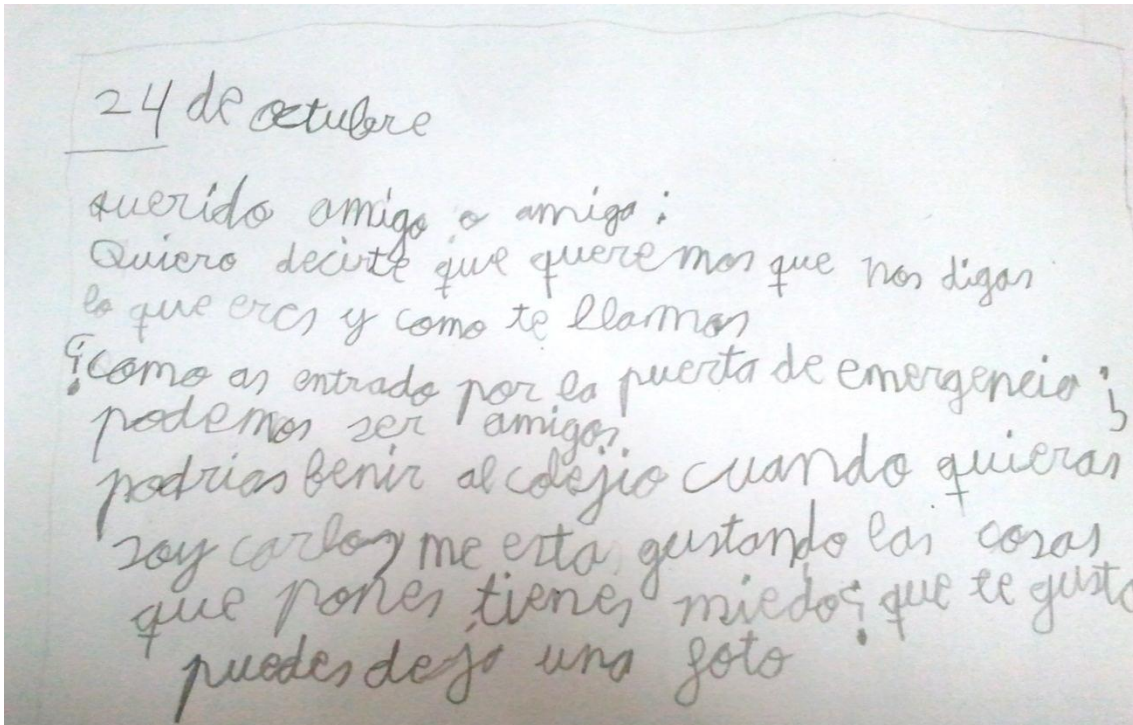 24 de octubre
querido amigo o amiga:
Quiero decirte que queremos que nos digas
lo que eres y como te llamas
¿como as entrado por la puerta de emergencia?
podemos ser amigos
podrias benir al colejio cuando quieras
soy carlos me esta gustando las cosas
que pones tienes miedo? que te gusta
puedes deja una foto